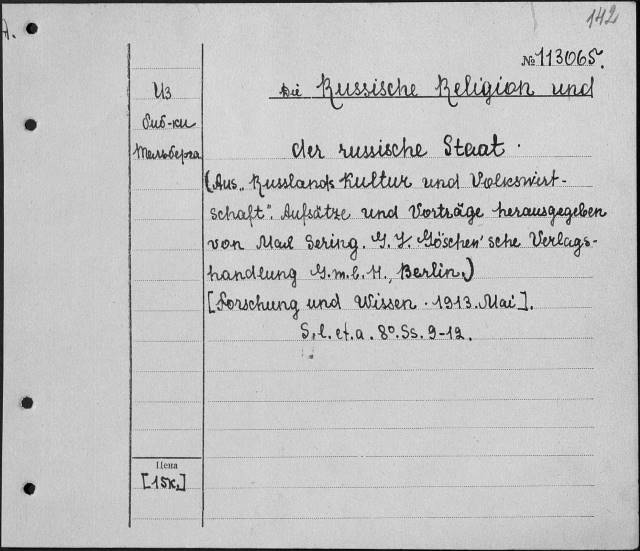 142
A.
№ 113065.
Из
биб-ки
Тальберга
Die Russische Religion und
der russische Staat.
(Aus „Russlands Kultur und Volkswirt-
schaft". Aufsätze und Vorträge herausgegeben
von Max Sering. G. J. Göschen'sche Verlags-
handlung G.m.b.H., Berlin.)
[Forschung und Wissen. 1913. Mai].
S.l.et.a. 8º. Ss. 9-12.
Цена
[15к.]